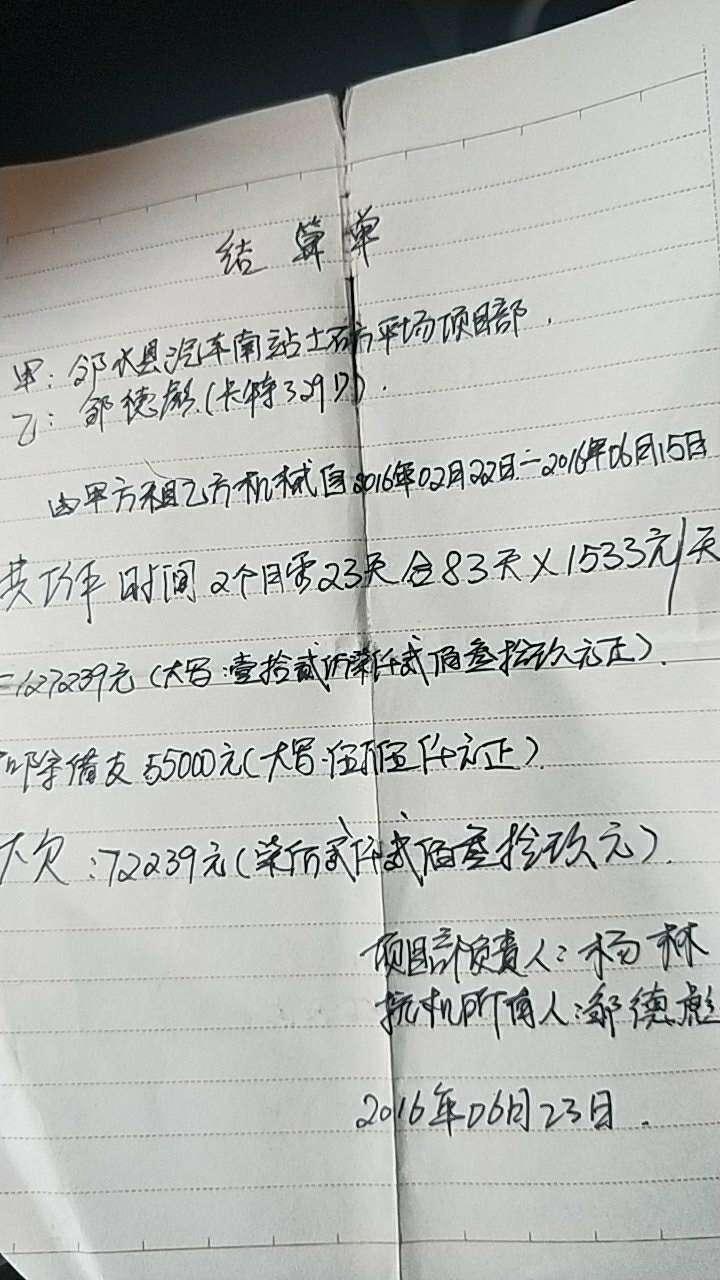 结算单
甲：邻水县汽车南站土石方平场项目部.
乙：邹德彪.(卡特329D).
由甲方租乙方机械自2016年02月22日—2016年06月15日
共 时间 2个月零23天合83天×1533元/天
=127239元(大写:壹拾贰万柒仟贰佰叁拾玖元正).
扣除借支55000元(大写:伍万伍仟元正).
下欠:72239元(柒万贰仟贰佰叁拾玖元).
项目部负责人:杨林
挖机所有人:邹德彪
2016年06月23日.